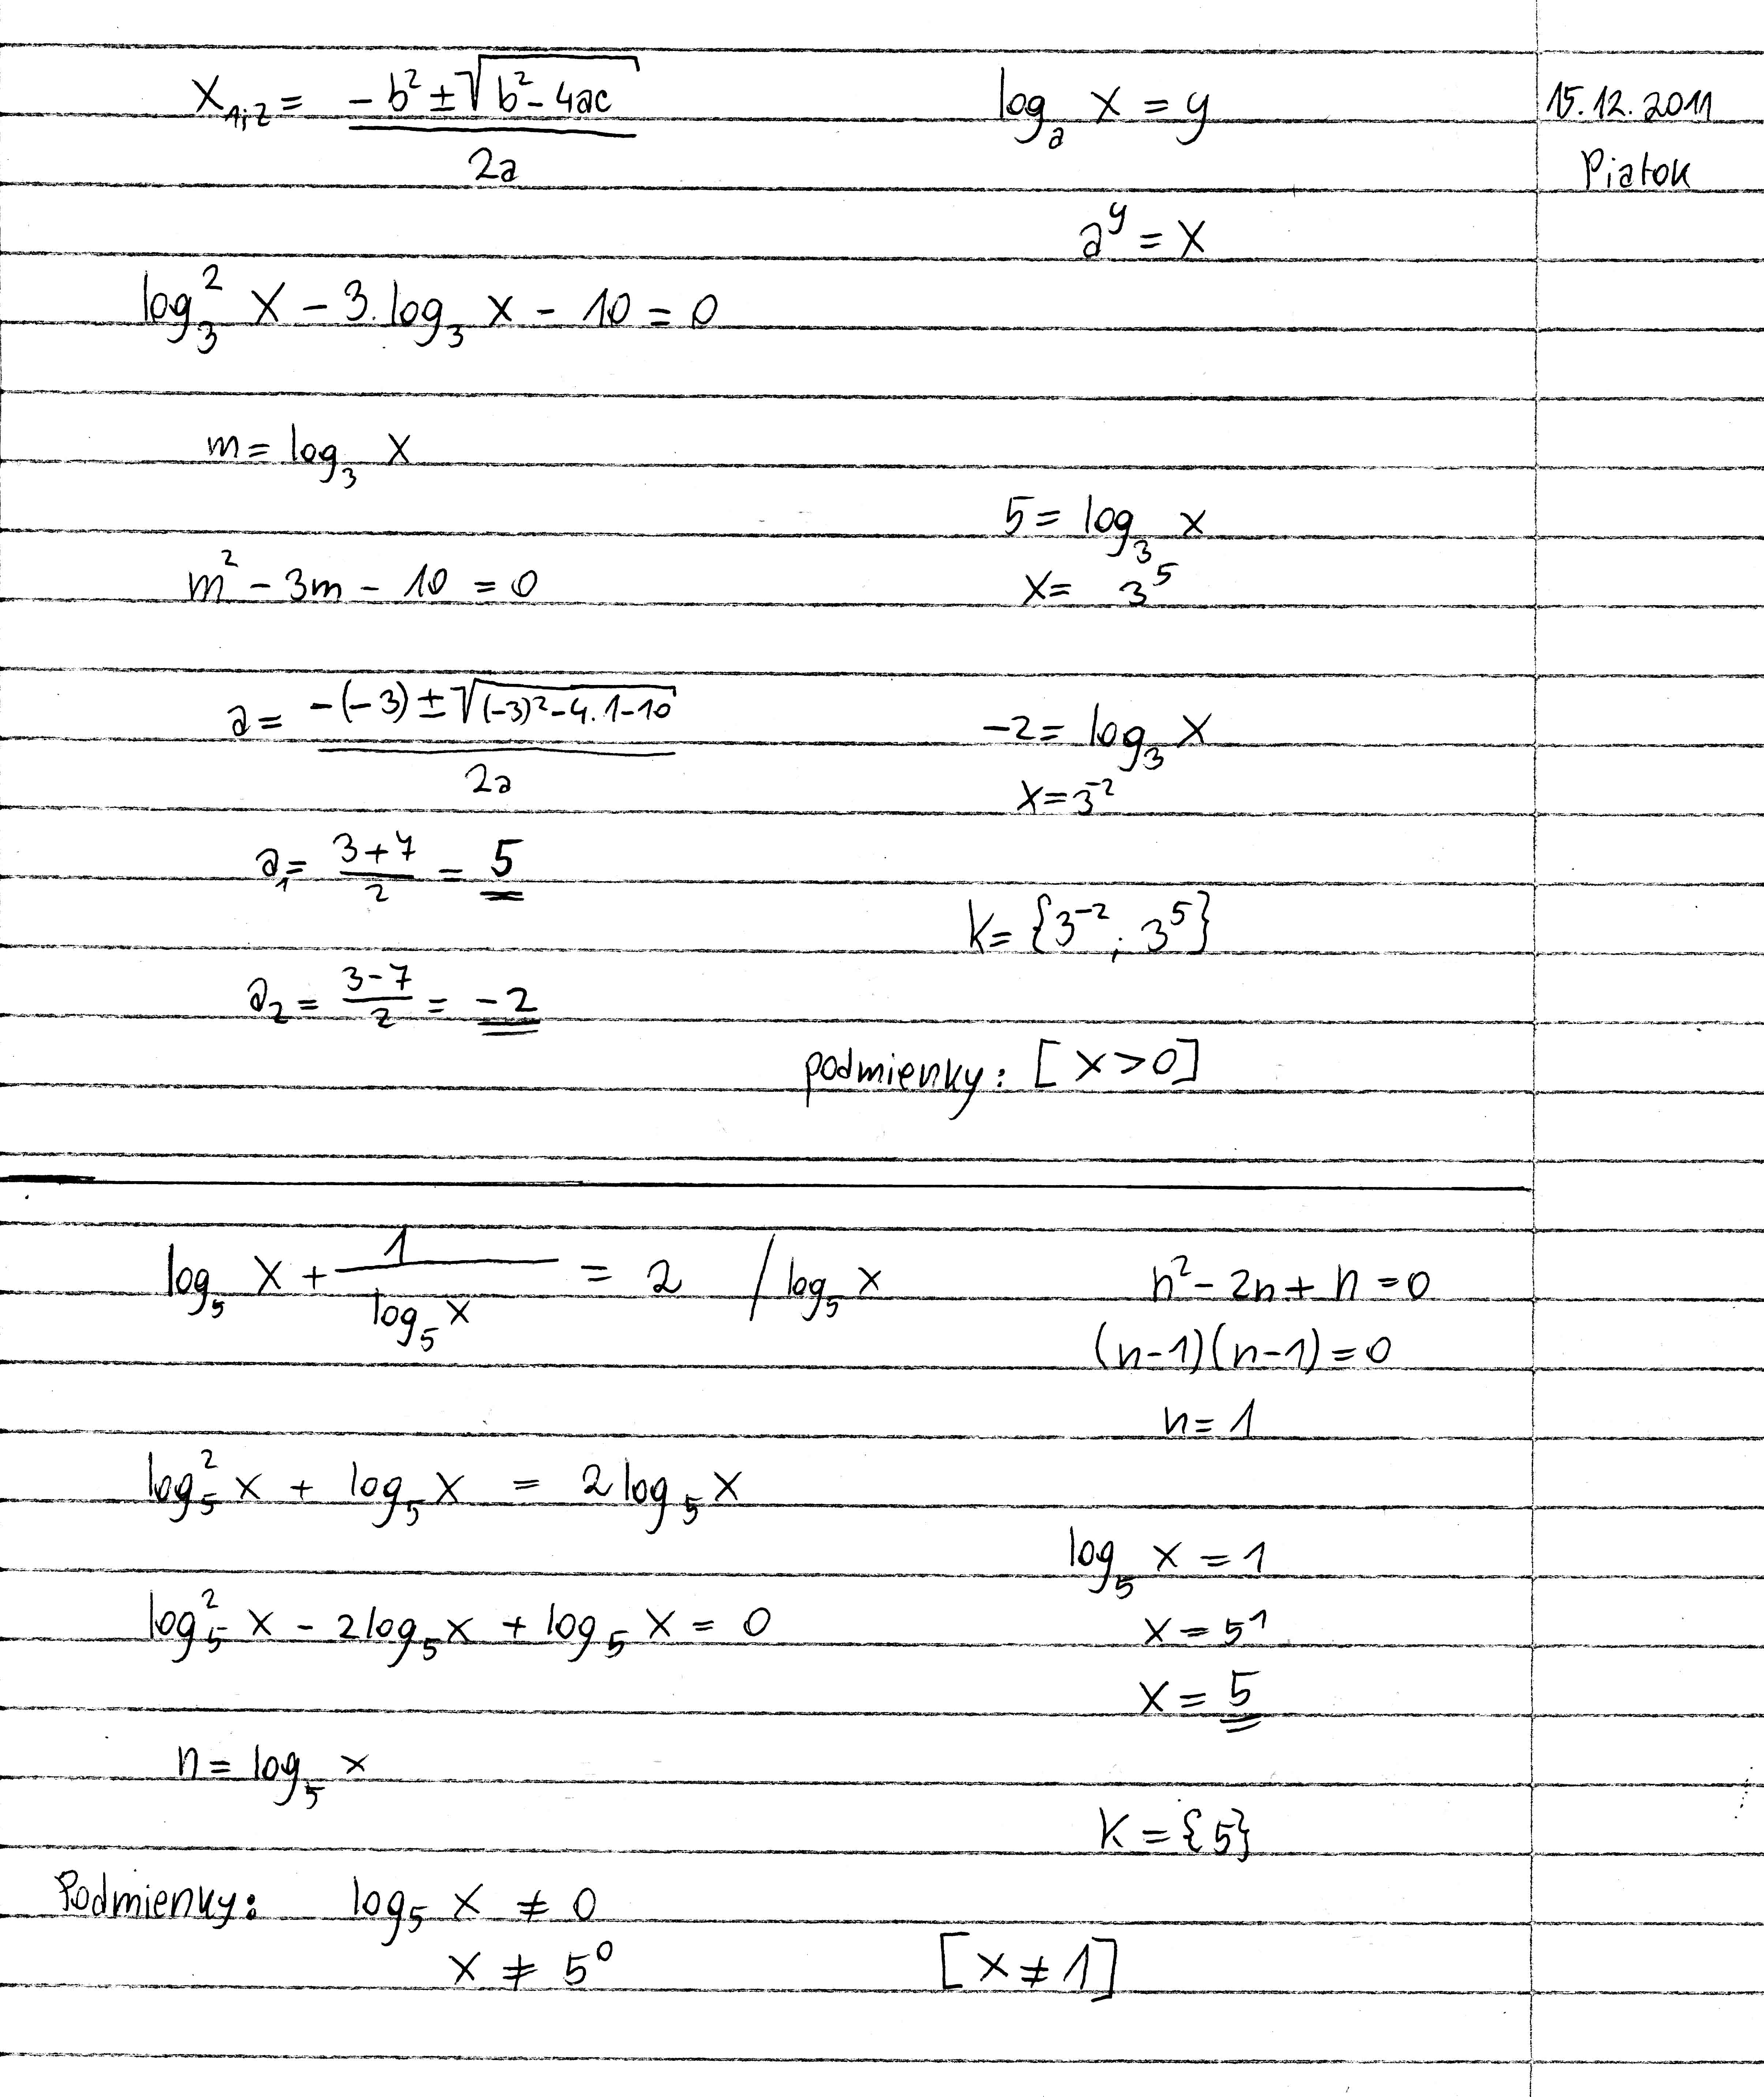 x₁;₂ = (-b² ± √(b² - 4ac)) / 2a
logₐ x = y
15.12.2011
Piatok
a^y = x
log₃² x - 3.log₃ x - 10 = 0
m = log₃ x
m² - 3m - 10 = 0
a = (-(-3) ± √((-3)² - 4.1-10)) / 2a
a₁ = (3+7) / 2 = 5
a₂ = (3-7) / 2 = -2
5 = log₃ x
x = 3⁵
-2 = log₃ x
x = 3⁻²
K = {3⁻²; 3⁵}
podmienky: [x > 0]
log₅ x + 1 / log₅ x = 2 / log₅ x
log₅² x + log₅ x = 2 log₅ x
log₅² x - 2 log₅ x + log₅ x = 0
n = log₅ x
n² - 2n + n = 0
(n-1)(n-1) = 0
n = 1
log₅ x = 1
x = 5¹
x = 5
K = {5}
Podmienky: log₅ x ≠ 0
x ≠ 5⁰ [x ≠ 1]